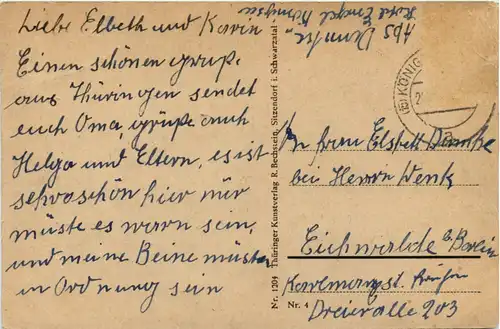 Liebe Elbeth und Karin
Einen schönen grupe
aus Thüringen sendet
euch Oma, grüße auch
Helga und Eltern, es ist
sehr schön hier nur
müste es warn sein,
und meine Beine müsten
in Ordnung sein
Abs Demke
Nr. 1209 Thüringer Kunstverlag R. Bechstein, Sitzendorf i. Schwarzatal
(15) KÖNIG
An frau Elsbett Demke
bei Herrn Wenk
Eichwalde b/Berlin
Nr. 4
Dreieralle 203